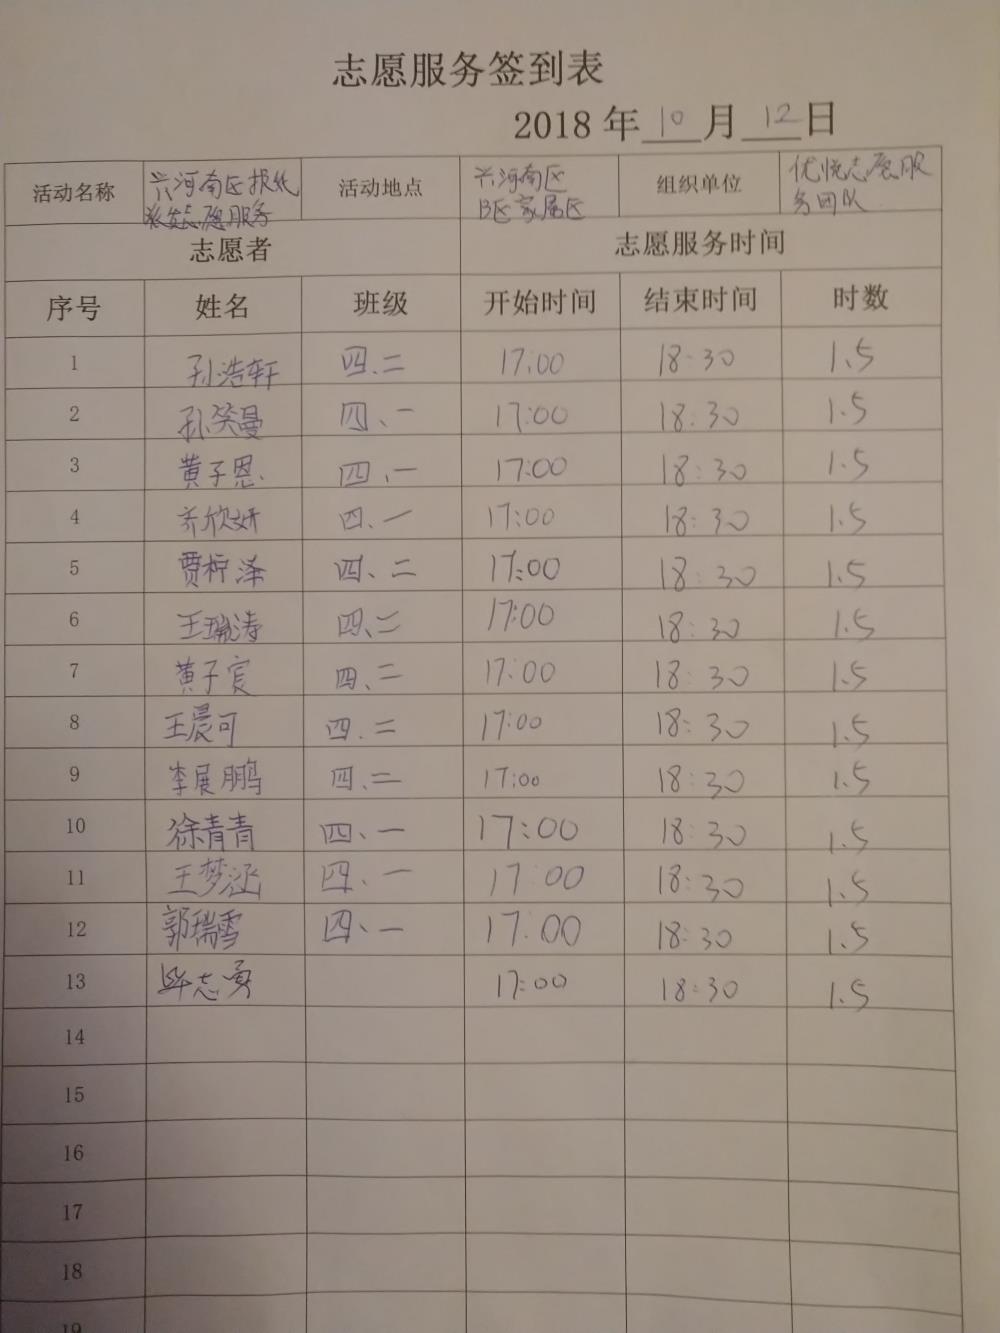 志愿服务签到表
2018 年 10 月 12 日
活动名称 兴河南区报纸 活动地点 兴河南区 组织单位 优悦志愿服
派发志愿服务 B区家属区 务团队
志愿者 志愿服务时间
序号 姓名 班级 开始时间 结束时间 时数
1 孙浩轩 四、二 17:00 18:30 1.5
2 孙笑曼 四、一 17:00 18:30 1.5
3 黄子恩 四、一 17:00 18:30 1.5
4 齐欣妍 四、一 17:00 18:30 1.5
5 贾柠泽 四、二 17:00 18:30 1.5
6 王瑞涛 四、二 17:00 18:30 1.5
7 黄子宸 四、二 17:00 18:30 1.5
8 王晨可 四、二 17:00 18:30 1.5
9 李展鹏 四、二 17:00 18:30 1.5
10 徐青青 四、一 17:00 18:30 1.5
11 王梦涵 四、一 17:00 18:30 1.5
12 郭瑞雪 四、一 17:00 18:30 1.5
13 志勇 17:00 18:30 1.5
14
15
16
17
18
19